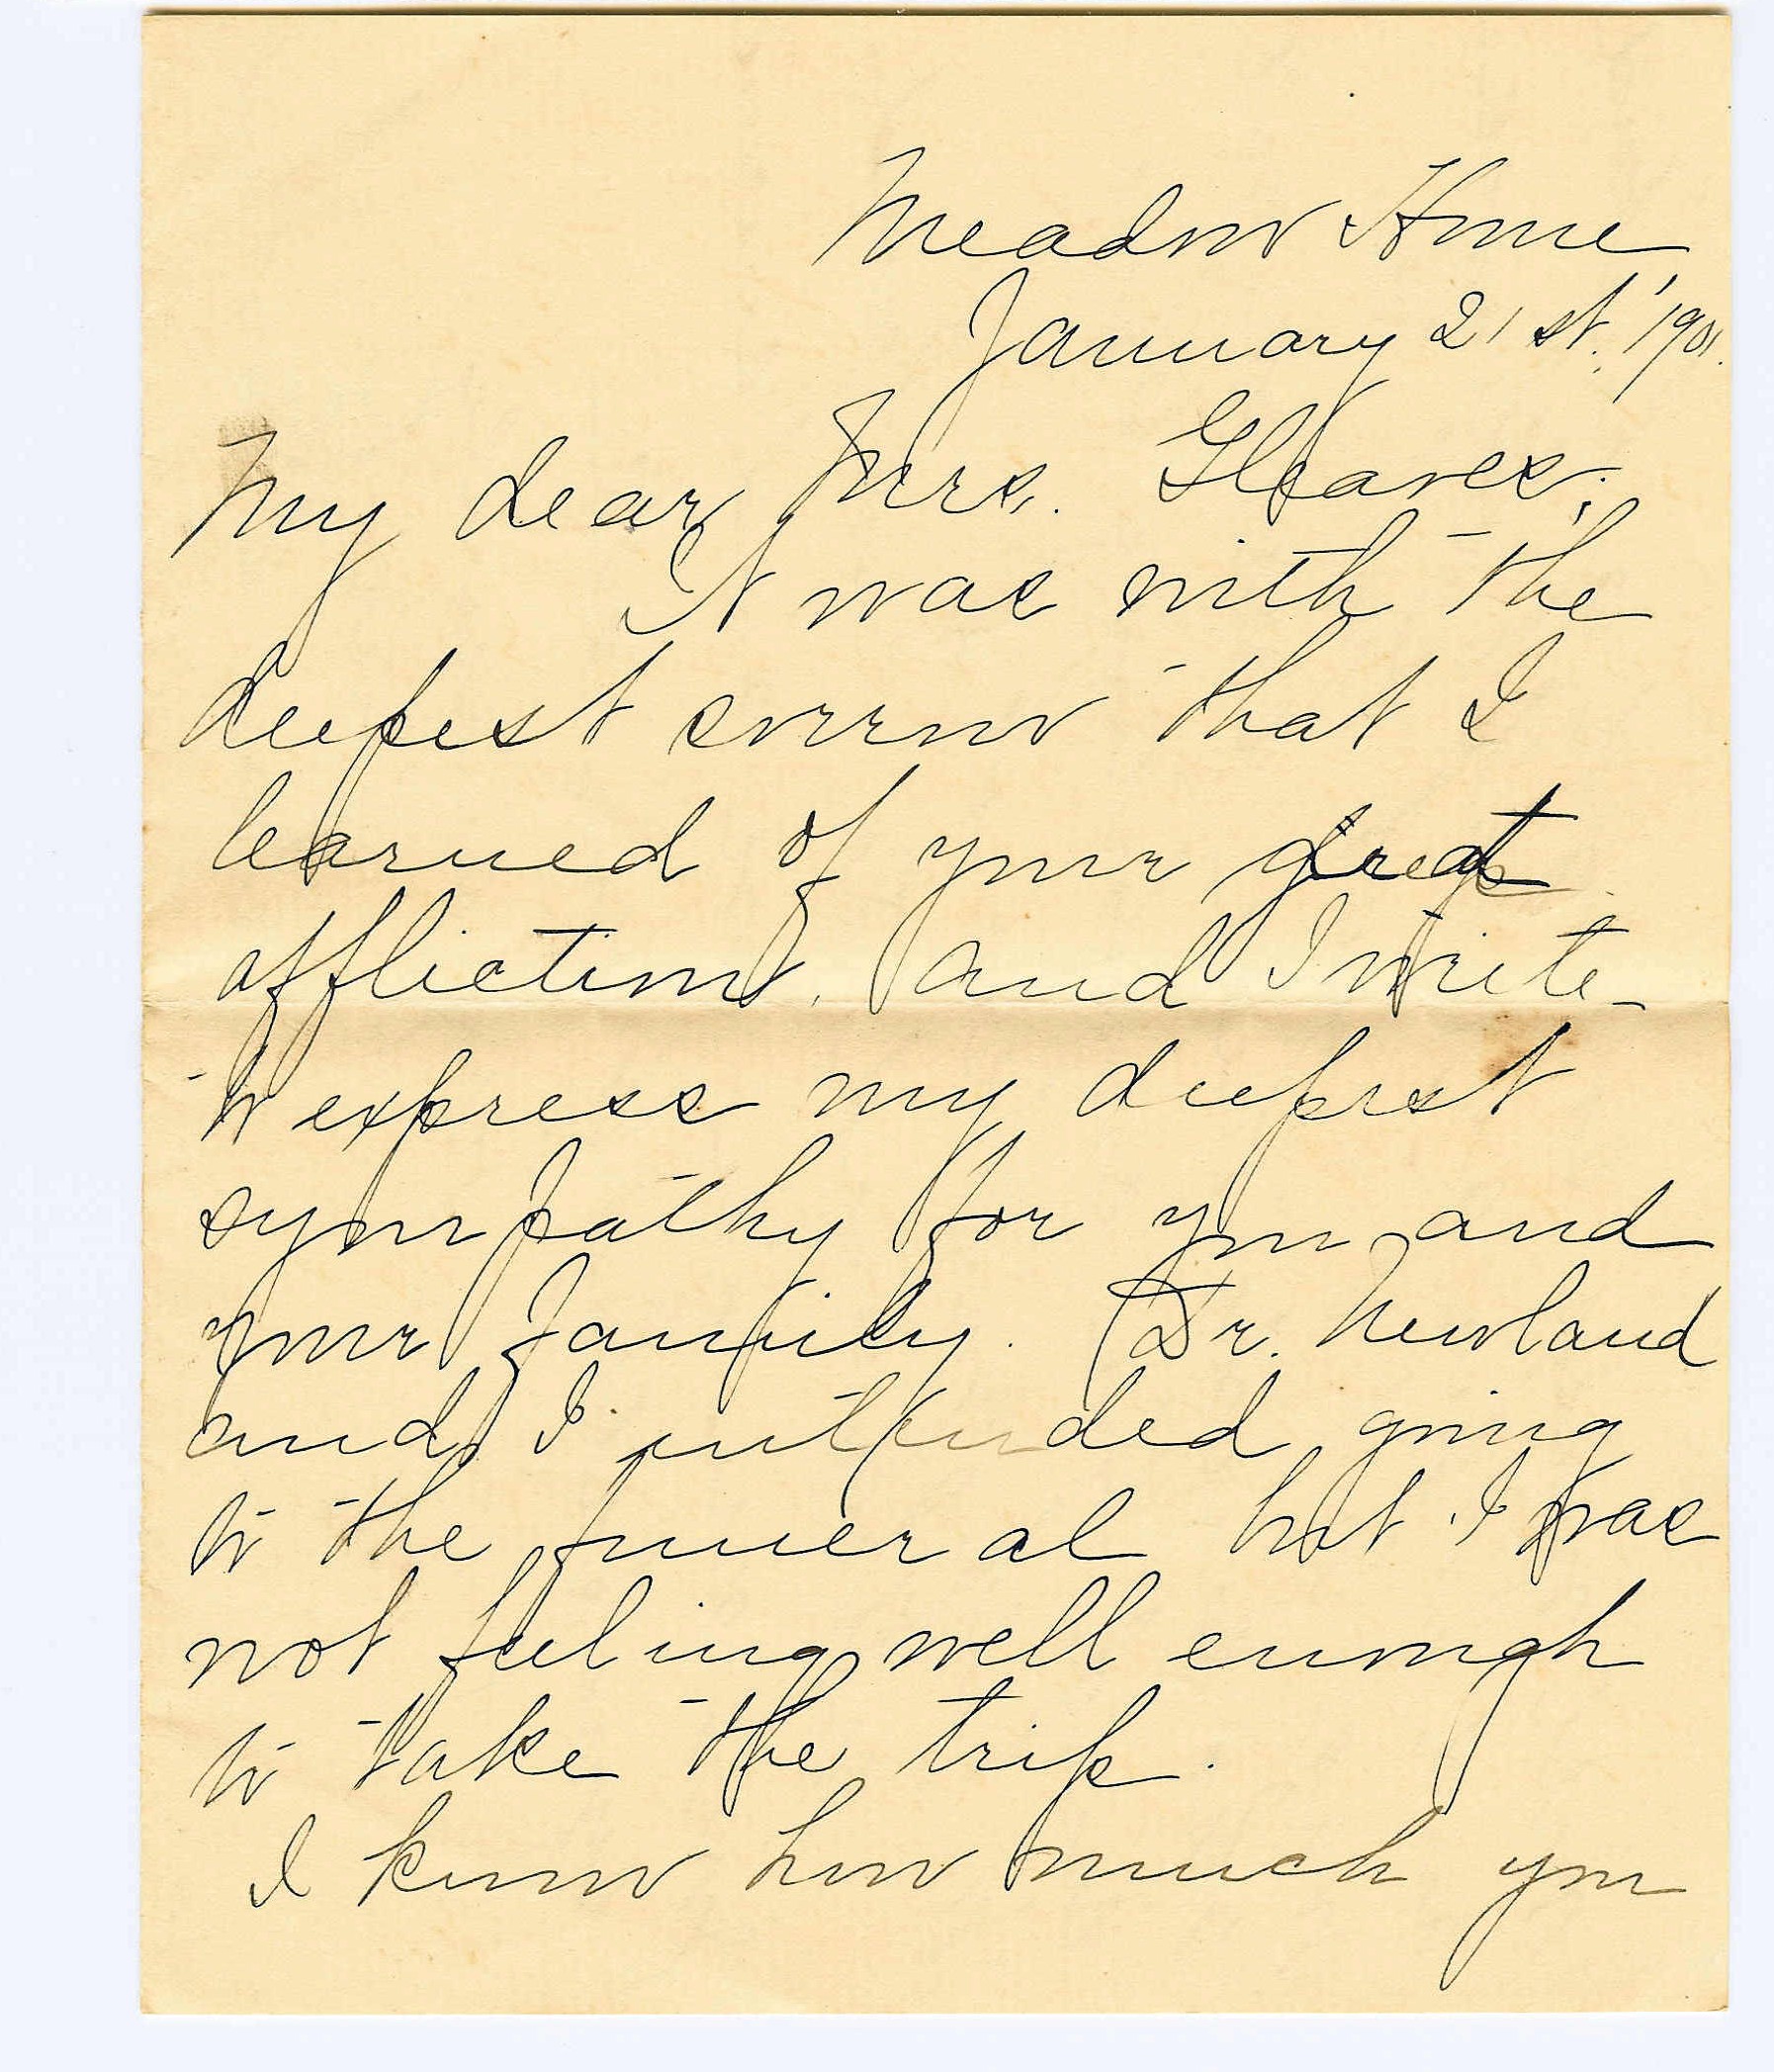 Meadow Home
January 21st. 1901.
My dear Mrs. Gleaves;
It was with the
deepest sorrow that I
learned of your great
affliction, and I write
to express my deepest
sympathy for you and
your family. Dr. Newland
and I intended going
to the funeral but I was
not feeling well enough
to take the trip.
I know how much you